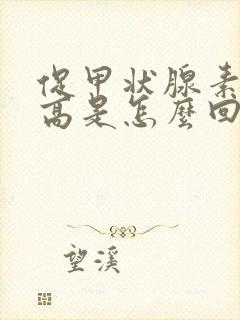 促甲状腺素
高是怎麼回
望溪